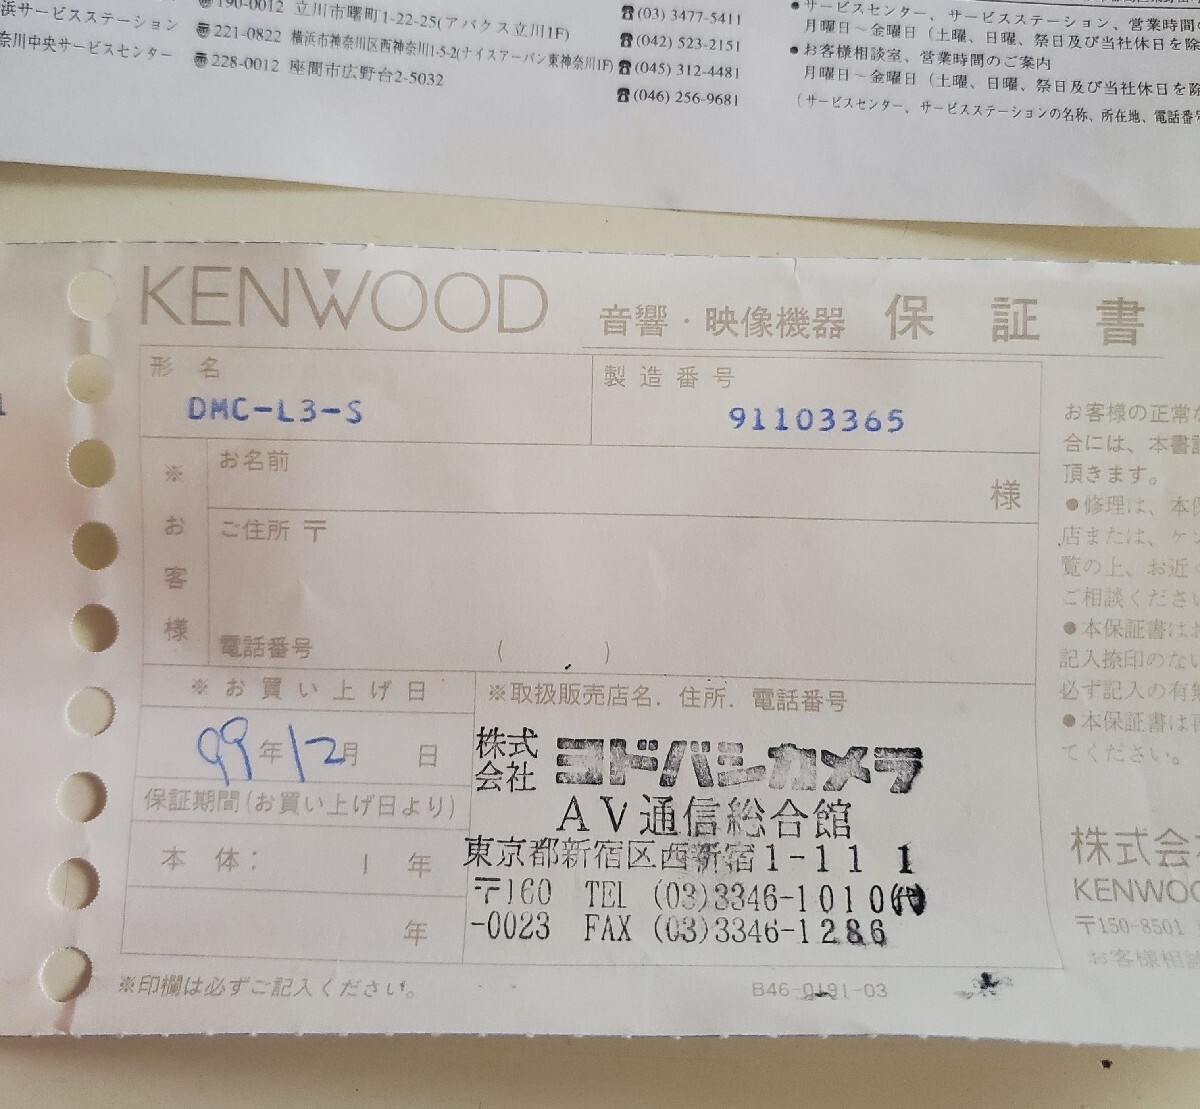 浜サービスステーション
〒190-0012 立川市曙町1-22-25(アバクス立川1F)
奈川中央サービスセンター
〒221-0822 横浜市神奈川区西神奈川1-5-2(ナイスアーバン東神奈川1F)
〒228-0012 座間市広野台2-5032
☎(03) 3477-5411
☎(042) 523-2151
☎(045) 312-4481
☎(046) 256-9681
●サービスセンター、サービスステーション、営業時間の
月曜日～金曜日（土曜、日曜、祭日及び当社休日を除
●お客様相談室、営業時間のご案内
月曜日～金曜日（土曜、日曜、祭日及び当社休日を除
（サービスセンター、サービスステーションの名称、所在地、電話番号
KENWOOD 音響・映像機器 保証書
形名
DMC-L3-S
製造番号
91103365
※お客様
お名前
様
ご住所 〒
電話番号 ( )
※お買い上げ日
99年12月 日
保証期間(お買い上げ日より)
本体： 1年
年
※取扱販売店名．住所．電話番号
株式会社 ヨドバシカメラ
AV通信総合館
東京都新宿区西新宿1-11 1
〒160 TEL (03)3346-1010(代)
-0023 FAX (03)3346-1286
※印欄は必ずご記入ください。
B46-0191-03
お客様の正常な
合には、本書
頂きます。
●修理は、本保
店または、ケン
覧の上、お近く
ご相談ください
●本保証書はお
記入捺印のない
必ず記入の有無
●本保証書は
てください。
株式会
KENWOO
〒150-8501
お客様相談